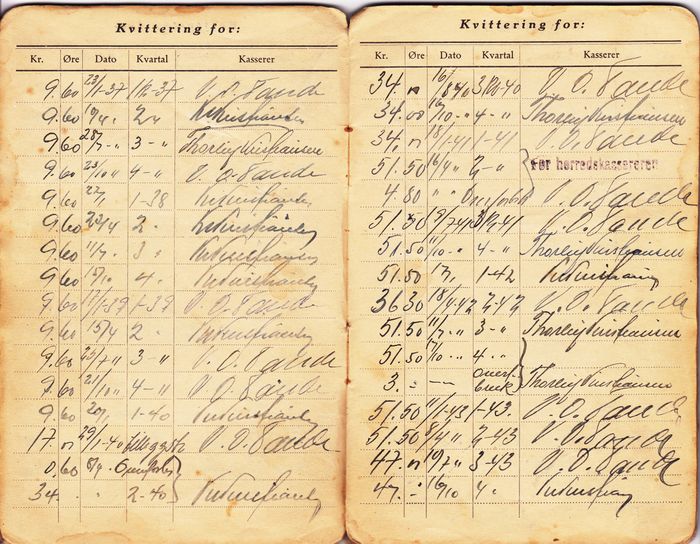 Kvittering for:
Kr. Øre Dato Kvartal Kasserer
9.60 23/1-37 1kv-37 V. O. Sande
9.60 2 Kr Kristiansen
9.60 3 - " Thorleif Kristiansen
9.60 23/10 " 4 - " V. O. Sande
9.60 27/1 1-38 Kr Kristiansen
9.60 2 " Kr Kristiansen
9.60 11/7 " 3 " Kr Kristiansen
9.60 15/10 4 " Kr Kristiansen
9.60 1-39 V. O. Sande
9.60 15/4 2 " Kr Kristiansen
9.60 25/7 " 3 - " V. O. Sande
9.60 21/10 " 4 - " V. O. Sande
9.60 20/1 1-40 Kr Kristiansen
17. " 29/1-40 V. O. Sande
0.60 8/4
34. " 2-40 Kr Kristiansen
Kvittering for:
Kr. Øre Dato Kvartal Kasserer
34. " 16/8 40 3 kv-40 V. O. Sande
34.00 16/10 - " 4 - " Thorleif Kristiansen
34. " 18/1-41 1-41 V. O. Sande
51.50 16/4 " 2 - " For herredskassereren
4.80 " " V. O. Sande
51.50 9/7 41 3 kv-41 V. O. Sande
51.50 11/10 - " 4 - " Thorleif Kristiansen
51.50 17/1 1-42 Kr Kristiansen
36.30 18/4-42 2-42 V. O. Sande
51.50 11/7 - " 3 - " Thorleif Kristiansen
51.50 17/10 - " 4 - "
3. - — Thorleif Kristiansen
51.50 11/1-43 1-43. V. O. Sande
51.50 8/4 " 2-43 V. O. Sande
47. " 19/7 " 3-43 V. O. Sande
47. " 16/10 4 " Kr Kristiansen